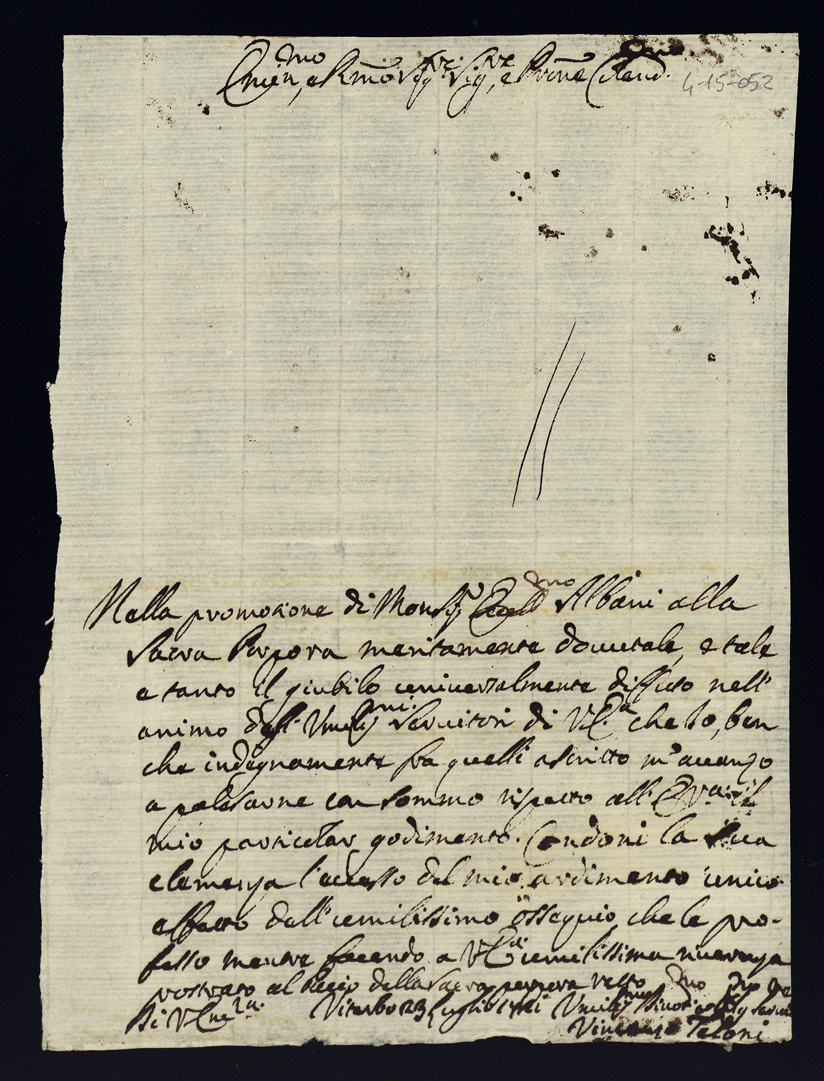 Emin.mo, e R.mo Sig.re Sig.re, e Prone Colend.mo
4-15-052
Nella promozione di Mons.r Ecell.mo Albani alla
Sacra Porpora meritamente douutale, e tale
e tanto il giubilo uniuersalmente diffuso nell'
animo degl'Umilis.mi Seruitori di V.E.a che Io, ben
che indegnamente fra quelli ascritto m'auanzo
a palesarne con sommo rispetto all'E.V.a il
mio particolar godimento. Condoni la Sua
clemenza l'eccesso del mio ardimento unico
effetto dell'umilissimo ossequio, che le pro-
fesso mentre facendo a V.E.a umilissima riuerenza
prostrato al bacio della Sacra porpora resto
Di V.Em.za Viterbo 23 Luglio Umilis.mo
Vincenzo Teloni